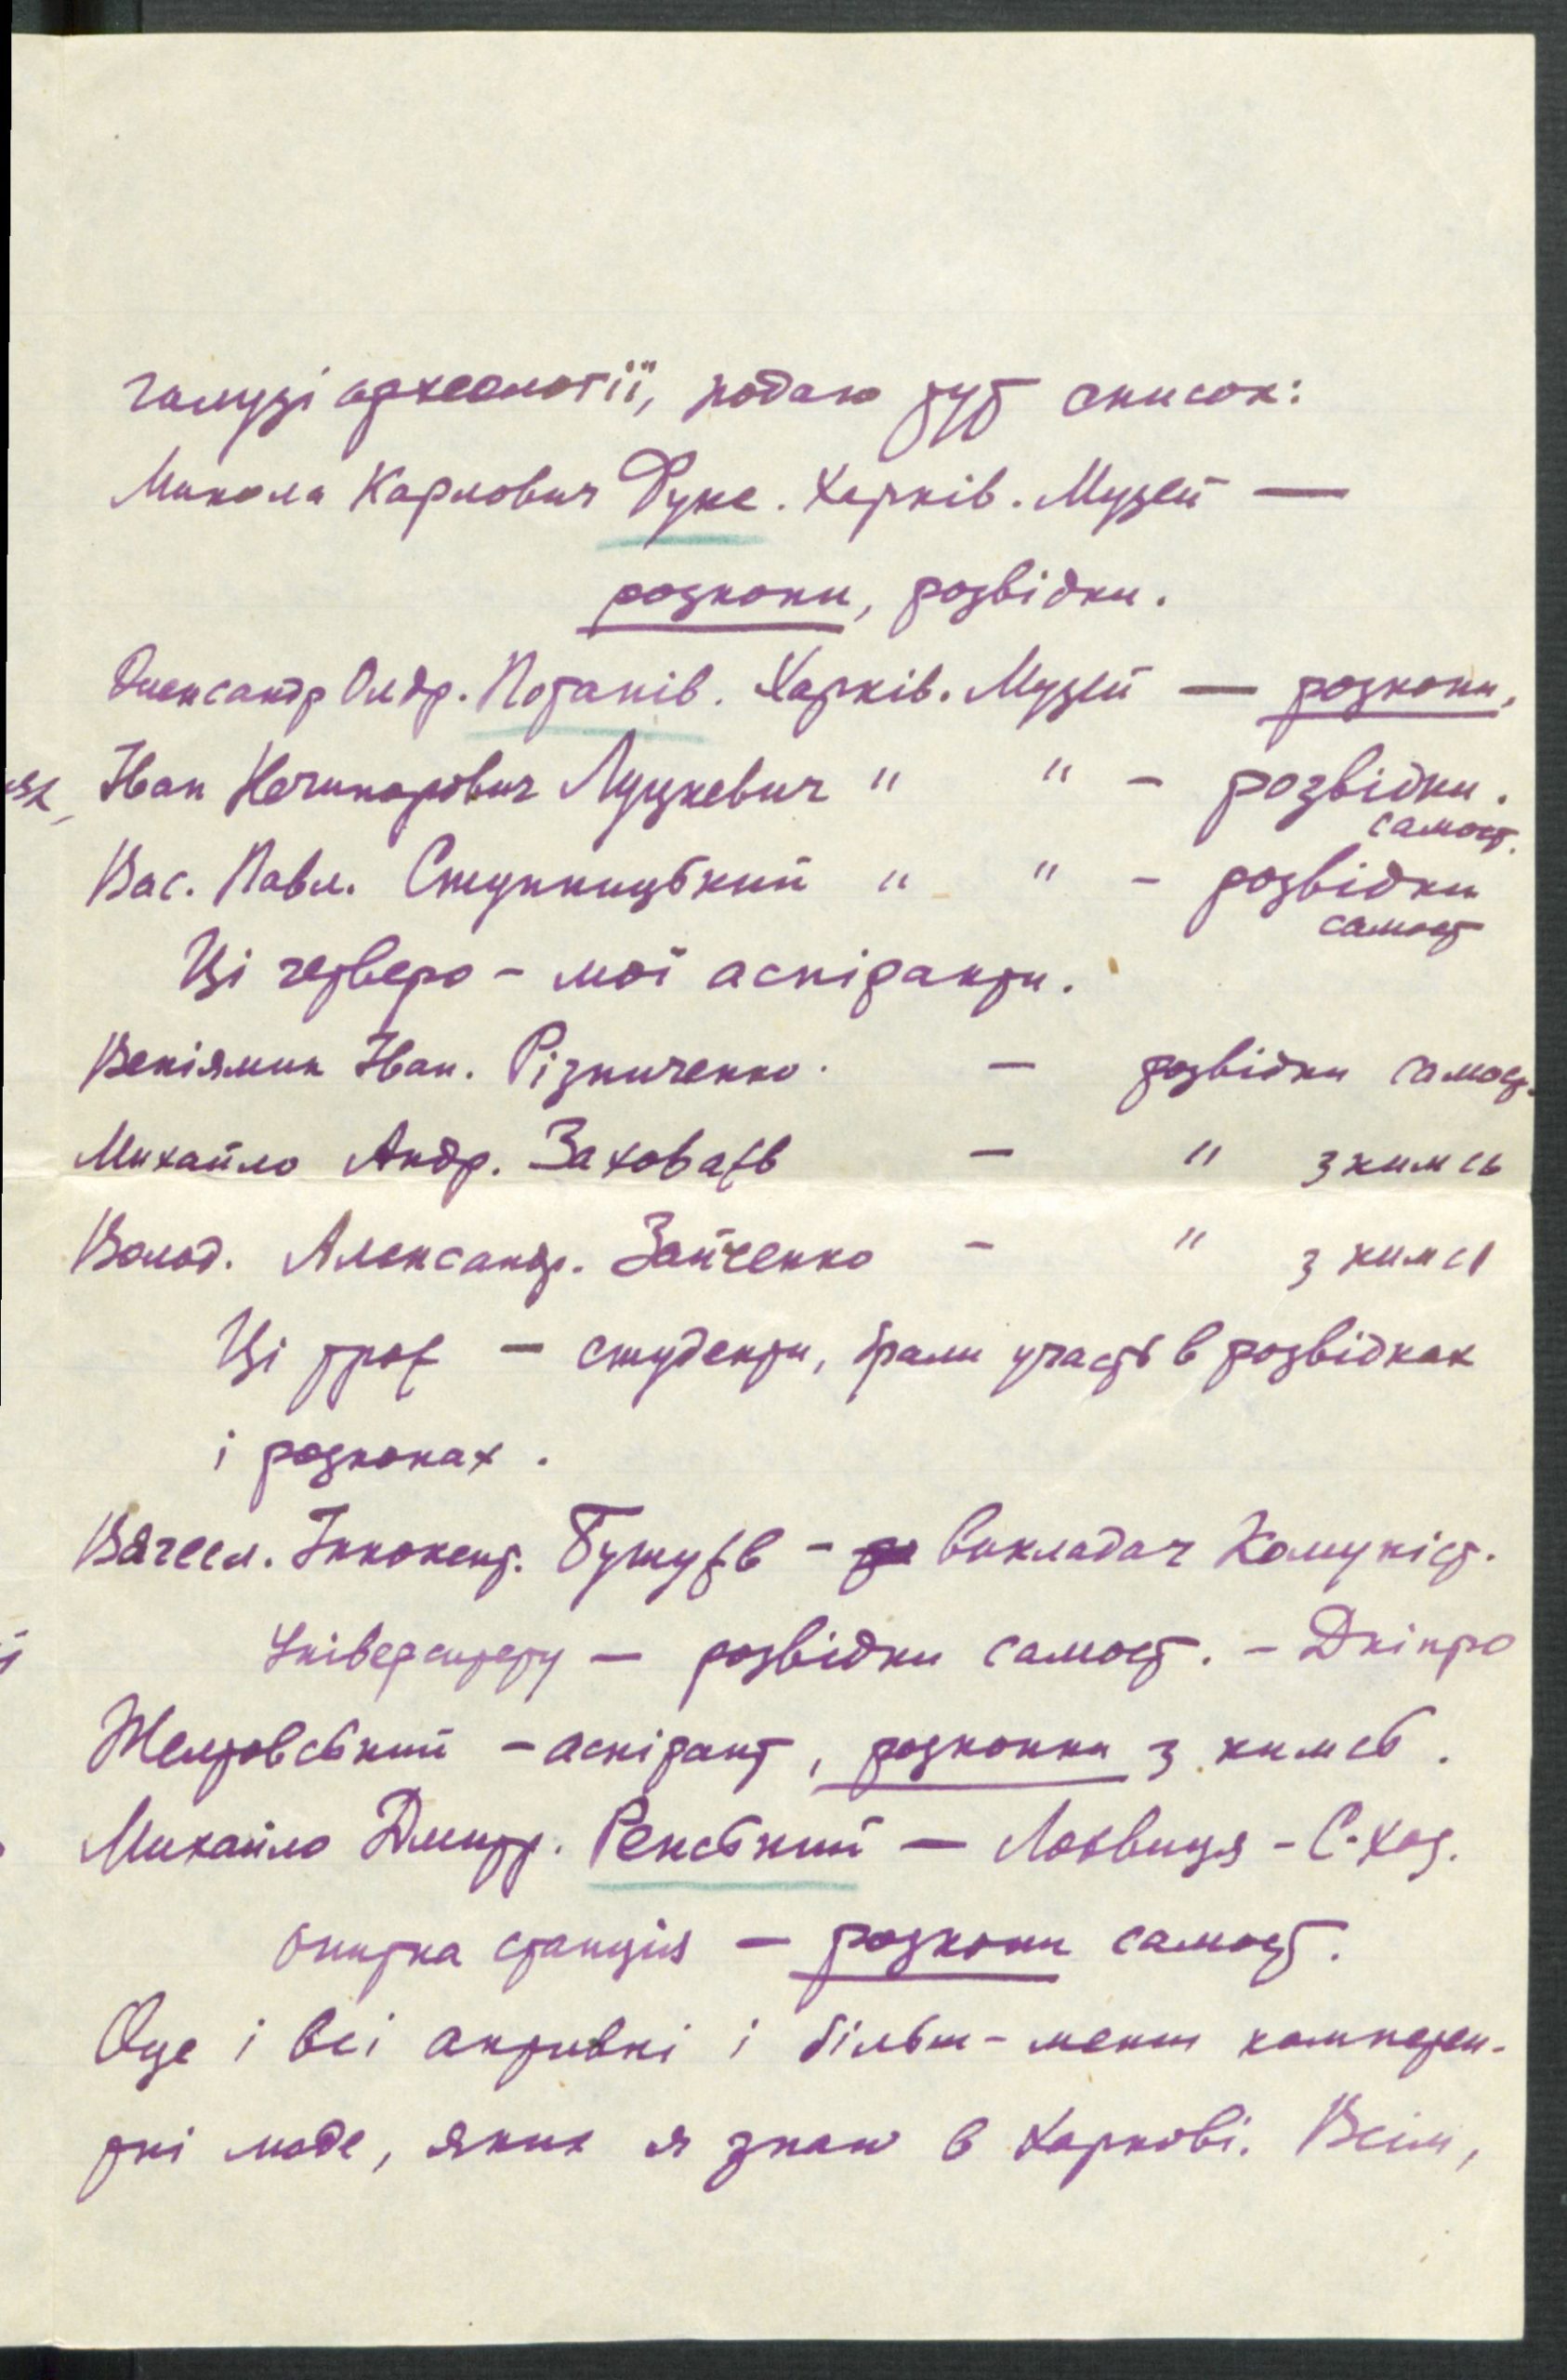 галузі археології, подаю тут список:
Микола Карлович Фукс. Харків. Музей —
розкопи, розвідки.
Олександр Олдр. Потапів. Харків. Музей — розкопи,
Іван Нечипорович Луцкевич " " - розвідки.
самост.
Вас. Павл. Ступницький " " - розвідки
самост
Ці четверо - мої аспіранти.
Веніямин Іван. Різниченко. — розвідки самост.
Михайло Андр. Заховаїв — " з кимсь
Волод. Александр. Зайченко - " з кимсь
Ці троє — студенти, брали участь в розвідках
і розкопах.
Вячесл. Інокент. Бутутїв - викладач Комуніст.
Університету — розвідки самост. - Дніпро
Желтовський - аспірант, розкопки з кимсь.
Михайло Дмитр. Ренський — Лохвиця - С-хоз.
опитна станція — розкопи самост.
Оце і всі активні і більш-менш компетен-
тні люде, яких я знаю в Харкові. Всім,